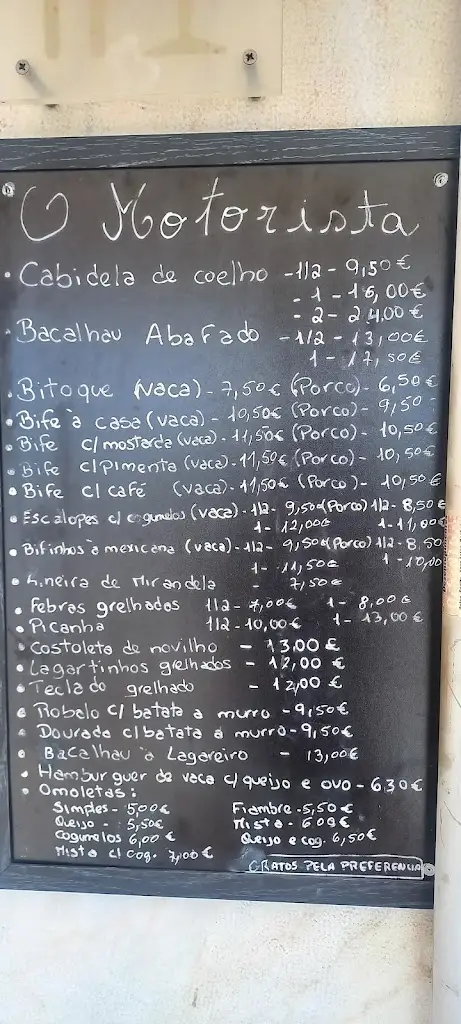 O Motorista
• Cabidela de coelho - 1/2 - 9,50€
- 1 - 16,00€
- 2 - 24,00€
• Bacalhau Abafado - 1/2 - 13,00€
1 - 17,50€
• Bitoque (vaca) - 7,50€ (Porco) - 6,50€
• Bife à casa (vaca) - 10,50€ (Porco) - 9,50 -
• Bife c/ mostarda (vaca) - 11,50€ (Porco) - 10,50€
• Bife c/Pimenta (vaca) - 11,50€ (Porco) - 10,50€
• Bife c/ café (vaca) - 11,50€ (Porco) - 10,50€
• Escalopes c/ cogumelos (vaca) - 1/2 - 9,50€ (Porco) 1/2 - 8,50€
1 - 12,00€ 1 - 11,00€
• Bifinhos à mexicana (vaca) - 1/2 - 9,50€ (Porco) 1/2 - 8,50
1 - 11,50€ 1 - 10,00
• Lineira de Mirandela - 7,50€
• Febras grelhadas 1/2 - 7,00€ 1 - 8,00€
• Picanha 1/2 - 10,00€ 1 - 13,00€
• Costoleta de novilho - 13,00€
• Lagartinhos grelhados - 12,00€
• Teclado grelhado - 12,00€
• Robalo c/ batata a murro - 9,50€
• Dourada c/ batata a murro - 9,50€
• Bacalhau à Lagareiro - 13,00€
• Hamburguer de vaca c/ queijo e ovo - 6.30€
• Omoletas:
Simples - 5,00€ Fiambre - 5,50€
Queijo - 5,50€ Mista - 6.00€
Cogumelos 6,00€ Queijo e cog. 6,50€
Mista c/ cog. 7,00€
GRATOS PELA PREFERENCIA